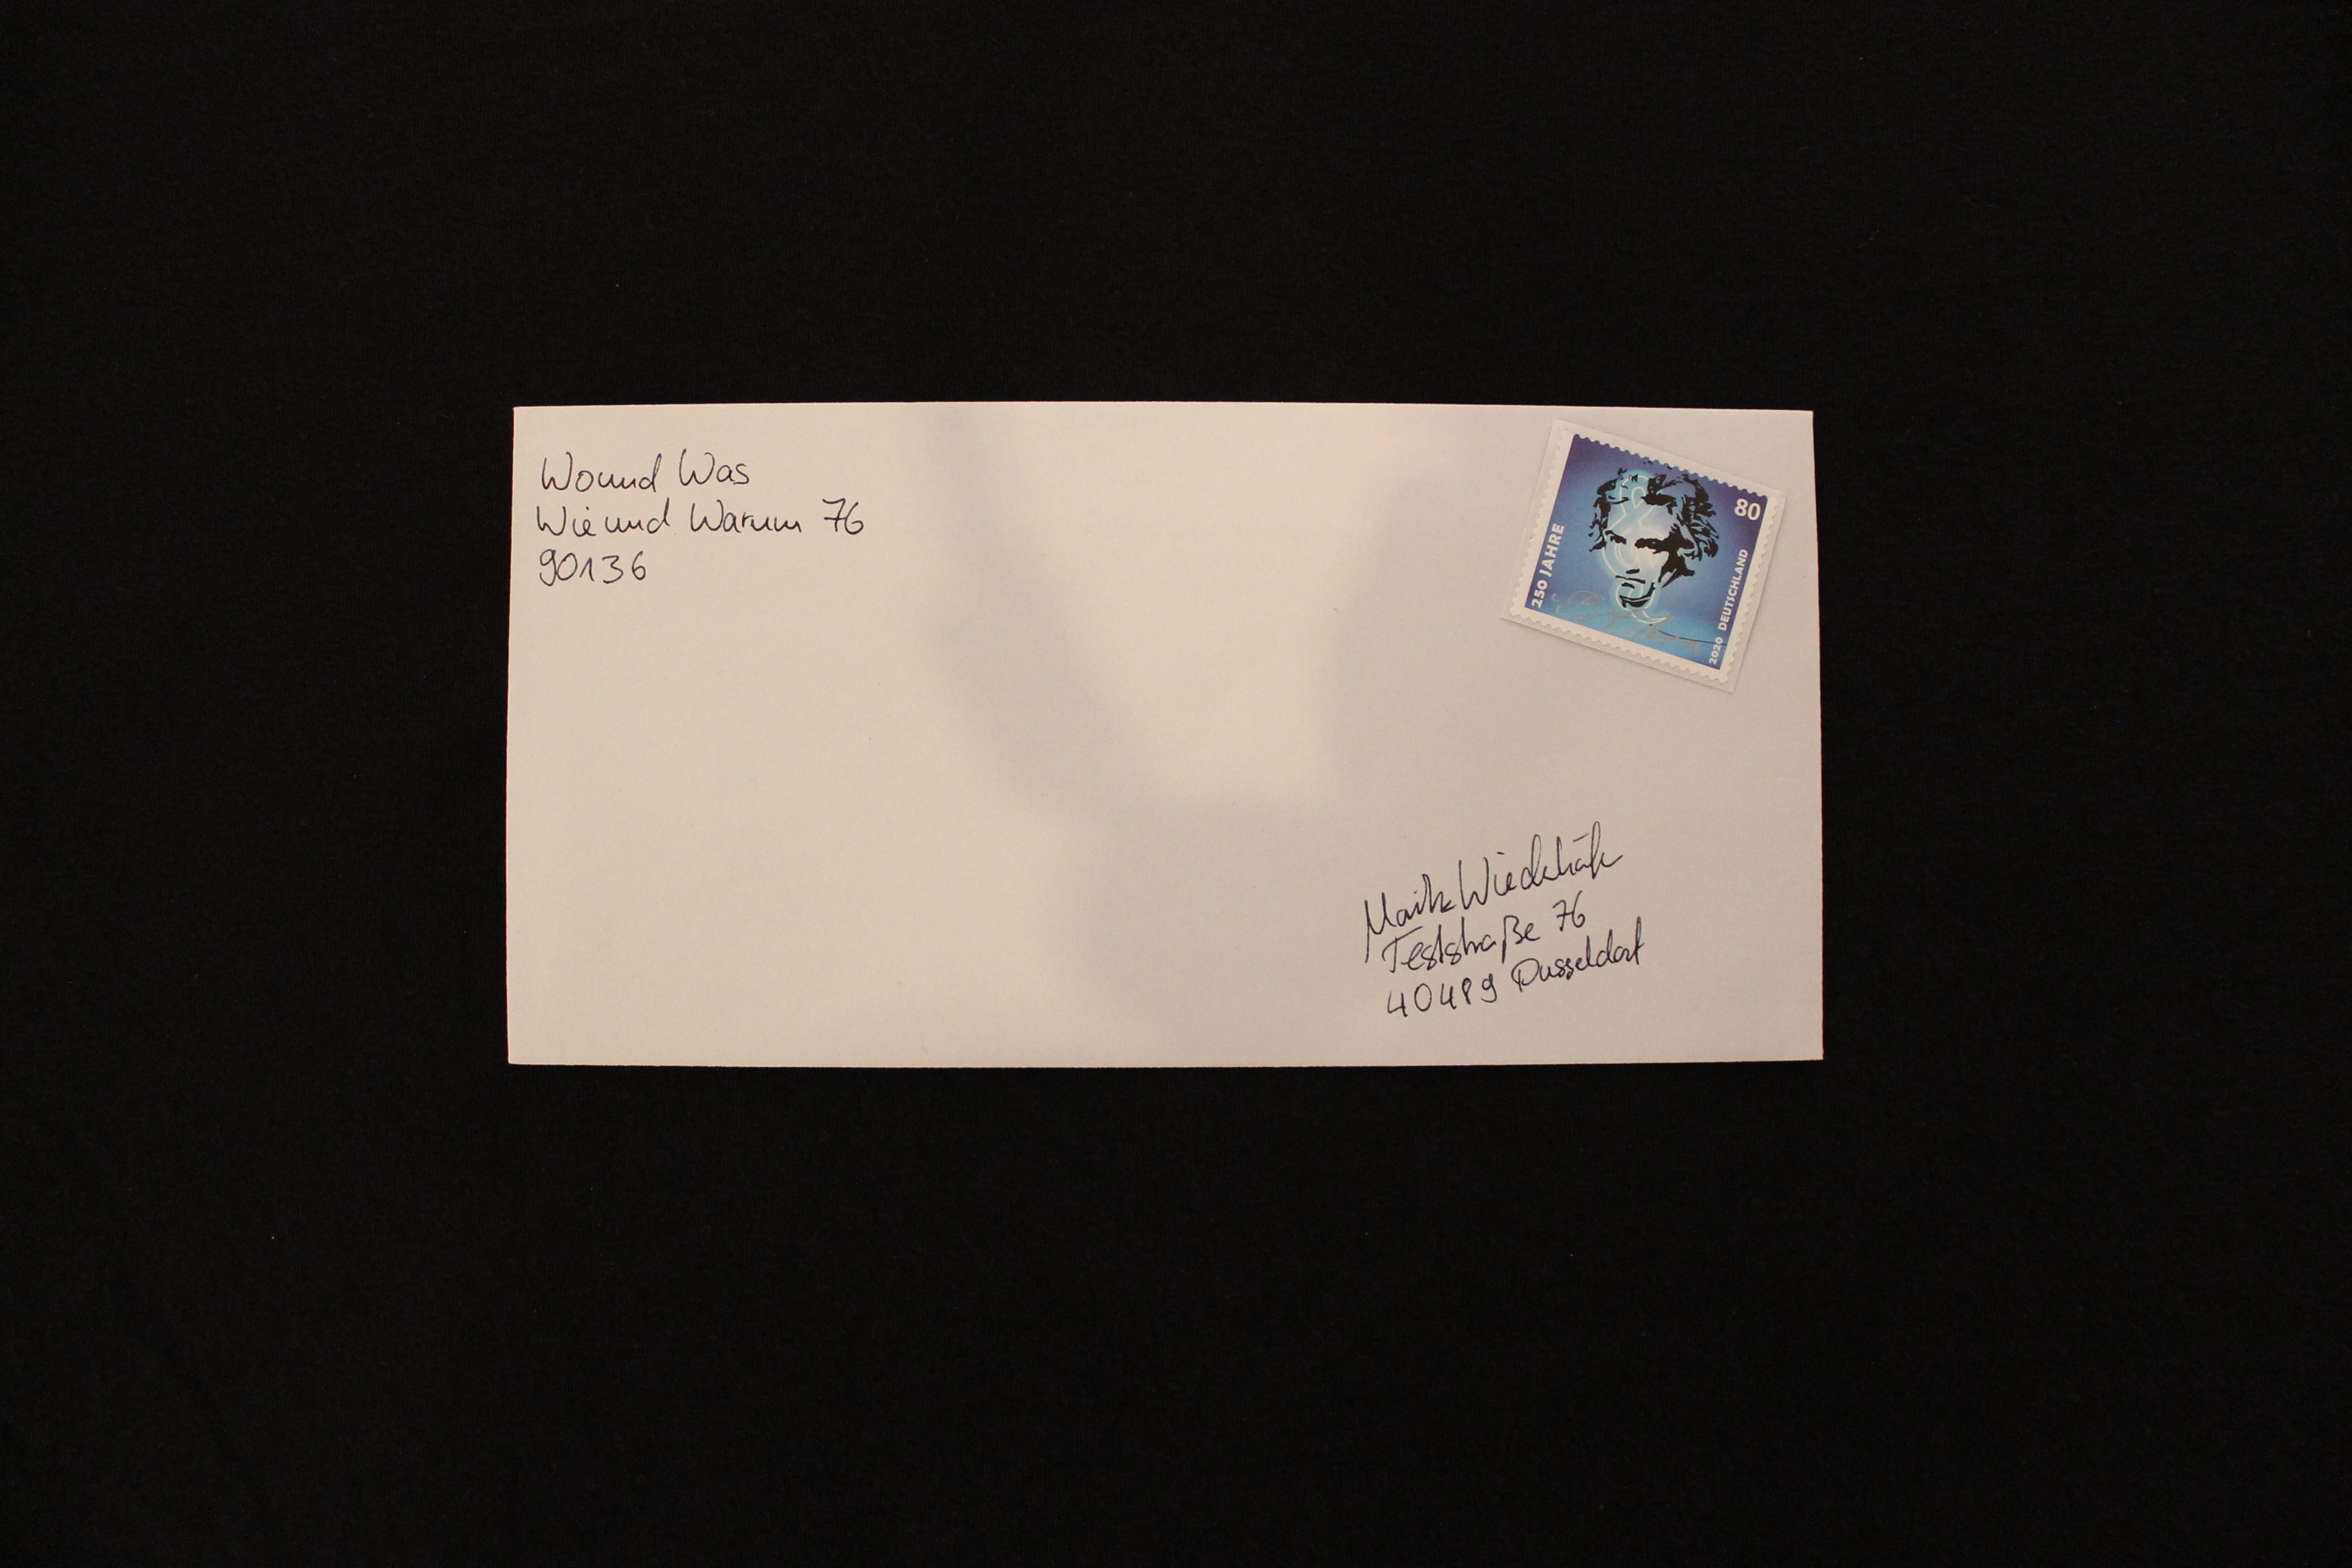 Wound Was
Wie und Warum 76
90136
250 JAHRE
80
2020 DEUTSCHLAND
Maik
Teststraße 76
40489 Dusseldorf